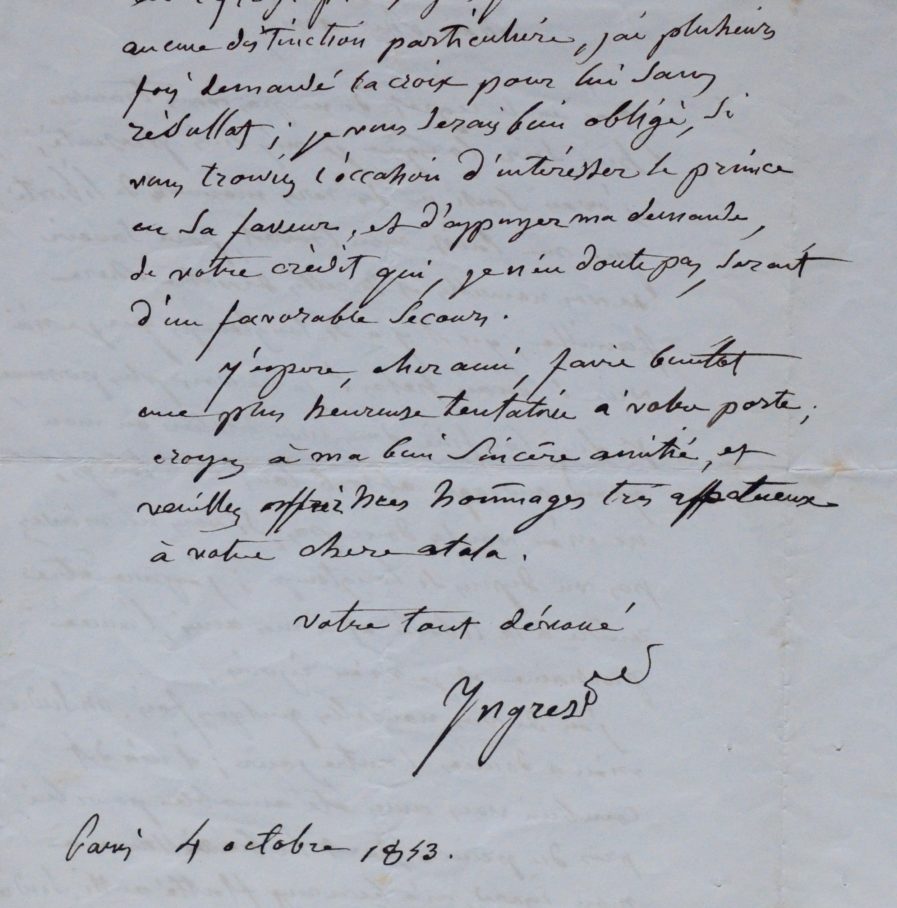 aucune distinction particulière, j'ai plusieurs
fois demandé la croix pour lui sans
résultat ; je vous serais bien obligé, si
vous trouviez l'occasion d'intéresser le prince
en sa faveur, et d'appuyer ma demande,
de votre crédit qui, je n'en doute pas, serait
d'un favorable secours.
J'espère, cher ami, faire bientot
une plus heureuse tentative à votre porte ;
croyez à ma bien sincère amitié, et
veuillez offrir mes hommages très affectueux
à votre chere atala.
votre tout dévoué
Ingres
Paris 4 octobre 1853.